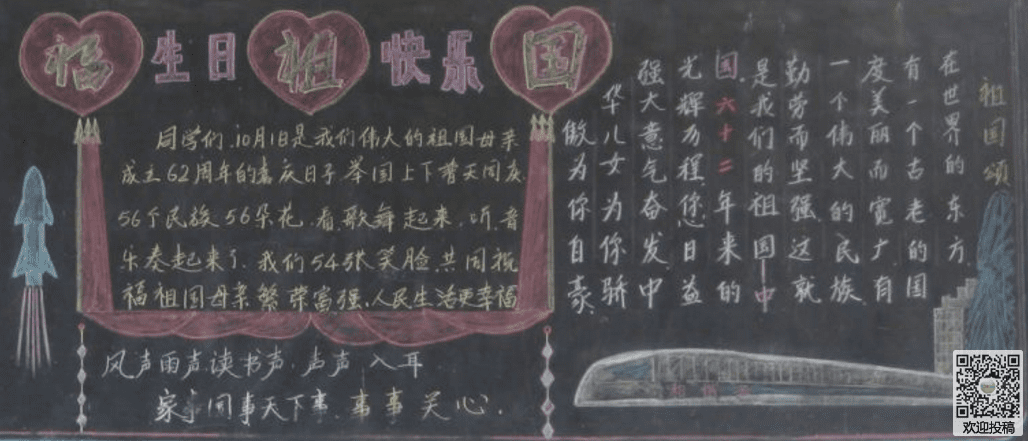 福生日祖快乐国
同学们,10月1日是我们伟大的祖国母亲
成立62周年的喜庆日子举国上下普天同庆
56个民族56朵花,看歌舞起来,听,音
乐奏起来了,我们54张笑脸,共同祝
福祖国母亲繁荣富强,人民生活更幸福
风声雨声读书声,声声入耳
家事国事天下事,事事关心.
祖国颂
在世界的东方
有一个古老的国
度美丽而宽广有
一个伟大的民族
勤劳而坚强这就
是我们的祖国—中
国,六十二年来的
光辉历程您日益
强大意气奋发中
华儿女为你骄
傲为你自豪
欢迎投稿